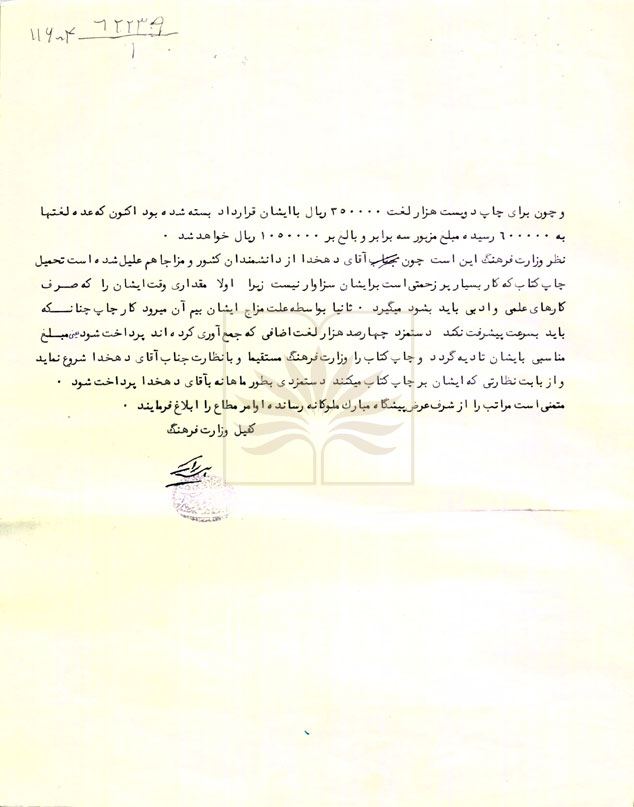 ۶۲۲۳۹
۱۱۶۰۴
۱
و چون برای چاپ دویست هزار لغت ۳۵۰۰۰۰ ریال باایشان قرارداد بسته شده بود اکنون که عده لغتها
به ۶۰۰۰۰۰ رسیده مبلغ مزبور سه برابر و بالغ بر ۱۰۵۰۰۰۰ ریال خواهد شد ۰
نظر وزارت فرهنگ این است چون جناب آقای دهخدا از دانشمندان کشور و مزاجا هم علیل شده است تحمیل
چاپ کتاب که کار بسیار پر زحمتی است برایشان سزاوار نیست زیرا اولا مقداری وقت ایشان را که صرف
کارهای علمی و ادبی باید بشود میگیرد ۰ ثانیا بواسطه علت مزاج ایشان بیم آن میرود کار چاپ چنانکه
باید بسرعت پیشرفت نکند دستمزد چهارصد هزار لغت اضافی که جمع آوری کرده اند پرداخت شود یعنی مبلغ
مناسبی بایشان تادیه گردد و چاپ کتاب را وزارت فرهنگ مستقیما و با نظارت جناب آقای دهخدا شروع نماید
و از بابت نظارتی که ایشان بر چاپ کتاب میکنند دستمزدی بطور ماهانه بآقای دهخدا پرداخت شود ۰
متمنی است مراتب را از شرف عرض پیشگاه مبارک ملوکانه رسانده اوامر مطاع را ابلاغ فرمایند ۰
کفیل وزارت فرهنگ